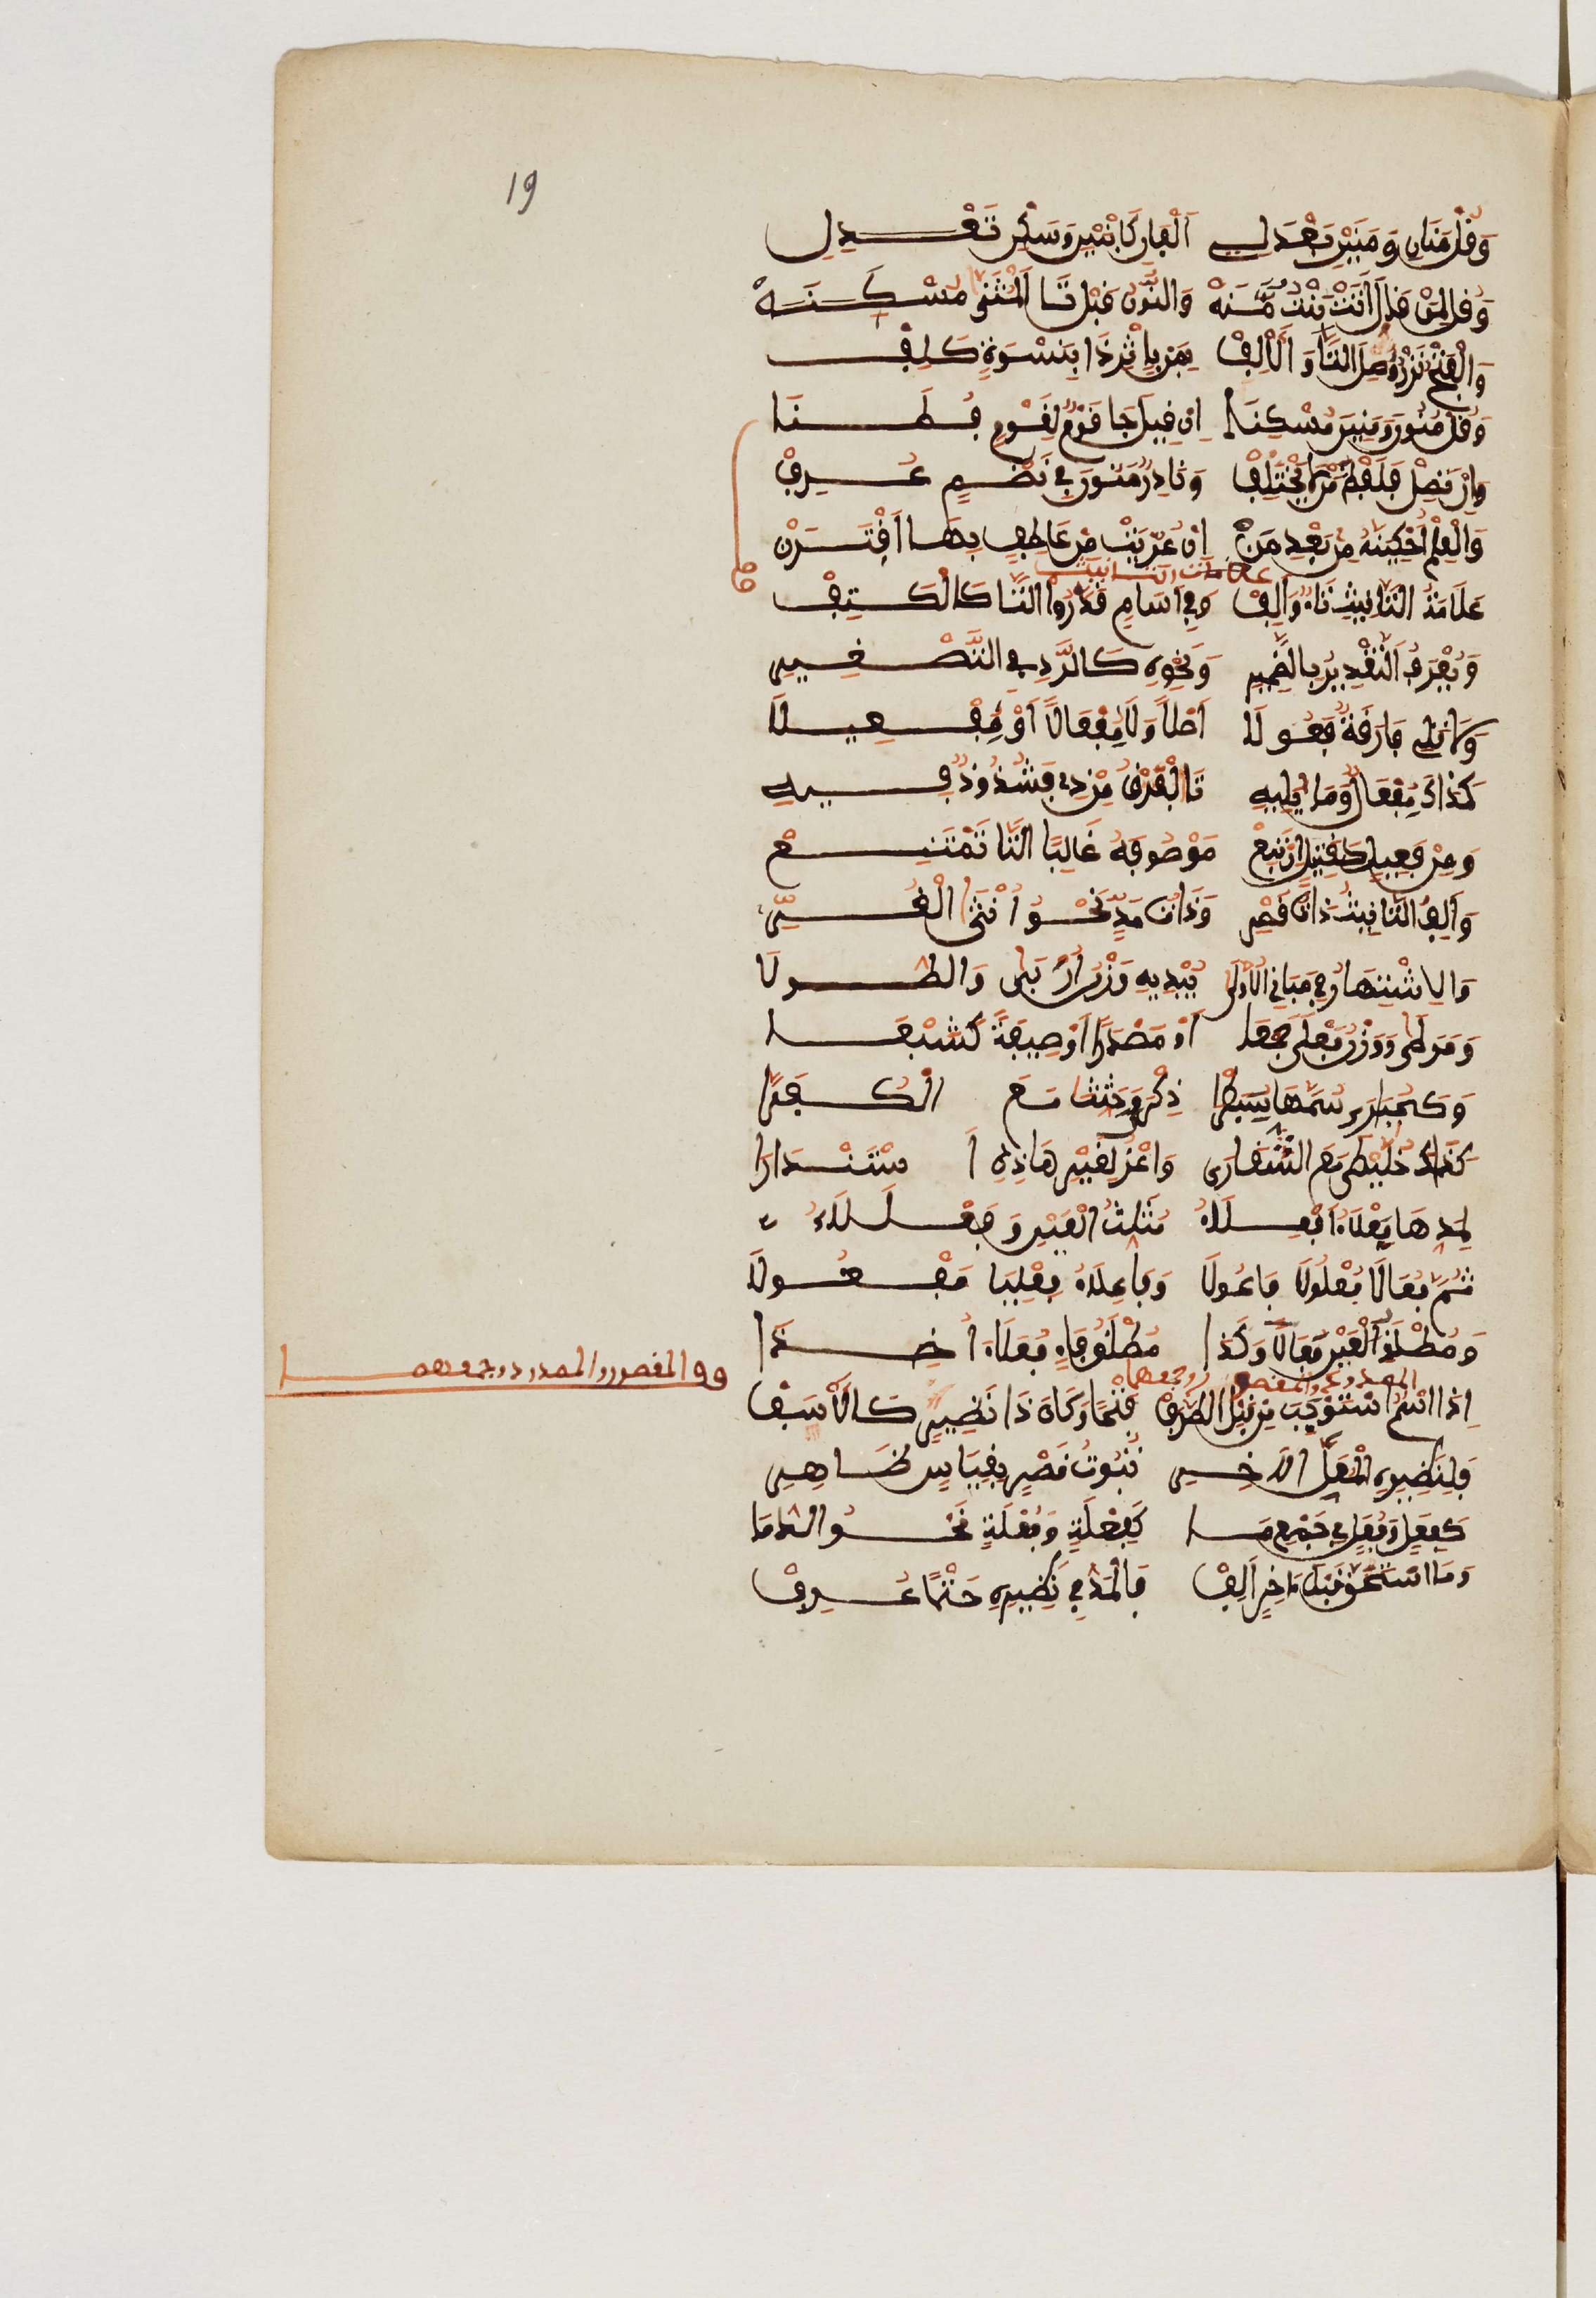 19
وَقُلْ مَنَانِ وَمَنَيْنِ بَعْدَ لِي اَلْفَانِ كَابْنَيْنِ وَسَكِّنْ تَعْدِلِ
وَقُل لِمَن قَالَ اَتَتْ بِنْتٌ مَنَهْ وَالنُّونُ قَبْلَ تَا الْمُثَنَّى مُسْكَنَهْ
وَالْفَتْحُ نَزْرٌ وَصِلِ التَّا وَالْأَلِفْ بِمَن بِإِثْرِ ذَا بِنِسْوَةٍ كَلِفْ
وَقُلْ مَنُونَ وَمَنِينَ مُسْكِنَا اِن قِيلَ جَا قَوْمٌ لِقَوْمٍ فُطَنَا
وَإِن تَصِلْ فَلَفْظُ مَن لَا يَخْتَلِفْ وَنَادِرٌ مَنُونَ فِي نَظْمٍ عُرِفْ
وَالْعَلَمَ احْكِيَنَّهُ مِن بَعْدِ مَنْ اِن عَرِيَتْ مِن عَاطِفٍ بِهَا اَقْتَرَنْ
علامات التانيث
عَلَامَةُ التَّانِيثِ تَاءٌ وَاَلِفْ وَفِي اَسَامٍ قَدَّرُوا التَّا كَالْكَتِفْ
وَيُعْرَفُ التَّقْدِيرُ بِالضَّمِيرِ وَنَحْوِهِ كَالرَّدِّ فِي التَّصْغِيرِ
وَلَا تَلِي فَارِقَةً فَعُولَا اَصْلاً وَلَا مِفْعَالاً اَوْ مِفْعِيلَا
كَذَاكَ مِفْعَلٌ وَمَا يَلِيهِ تَا الْفَرْقِ مِن ذِي فَشُذُوذٌ فِيهِ
وَمِن فَعِيلٍ كَقَتِيلٍ اِن تَبِعْ مَوْصُوفَهُ غَالِبًا التَّا تَمْتَنِعْ
وَاَلِفُ التَّانِيثِ ذَاتُ قَصْرِ وَذَاتُ مَدٍّ نَحْوُ اُنْثَى الْغُرِّ
وَالِاشْتِهَارُ فِي مَبَانِي الْأُولَى يُبْدِيهِ وَزْنُ اُرَبَى وَالطُّولَى
وَمَرَطَى وَوَزْنُ فَعْلَى جَمْعَا اَوْ مَصْدَرًا اَوْ صِفَةً كَشَبْعَى
وَكَحُبَارَى سُمَّهَى سِبَطْرَى ذِكْرَى وَحِثِّيثَا مَعَ الْكُفُرَّى
كَذَاكَ خُلَّيْطَى مَعَ الشُّقَّارَى وَاعْزُ لِغَيْرِ هَاذِهِ اَ سْتِنْدَارَا
لِمَدِّهَا فَعْلَاءُ اَفْعِلَاءُ مُثَلَّثُ الْعَيْنِ وَفَعْلَلَاءُ
ثُمَّ فِعَالَا فُعْلُلَا فَاعُولَا وَفَاعِلَاءُ فِعْلِيَا مَفْعُولَا
وَمُطْلَقَ الْعَيْنِ فَعَالَا وَكَذَا مُطْلَقَ فَاءٍ فَعَلَاءُ اُخِذَا
المقصور والممدود وجمعهما
الممدود والمقصور وجمعهما
اِذَا اسْمٌ اسْتَوْجَبَ مِن قَبْلِ الطَّرَفْ فَتْحًا وَكَانَ ذَا نَظِيرٍ كَالْأَسَفْ
فَلِنَظِيرِهِ الْمُعَلِّ الْآخِرِ ثُبُوتُ قَصْرٍ بِقِيَاسٍ ظَاهِرِ
كَفِعَلٍ وَفُعَلٍ فِي جَمْعِ مَا كَفِعْلَةٍ وَفُعْلَةٍ نَحْوُ الدُّمَا
وَمَا اسْتَحَقَّ قَبْلَ ءَاخِرٍ اَلِفْ فَالْمَدُّ فِي نَظِيرِهِ حَتْمًا عُرِفْ